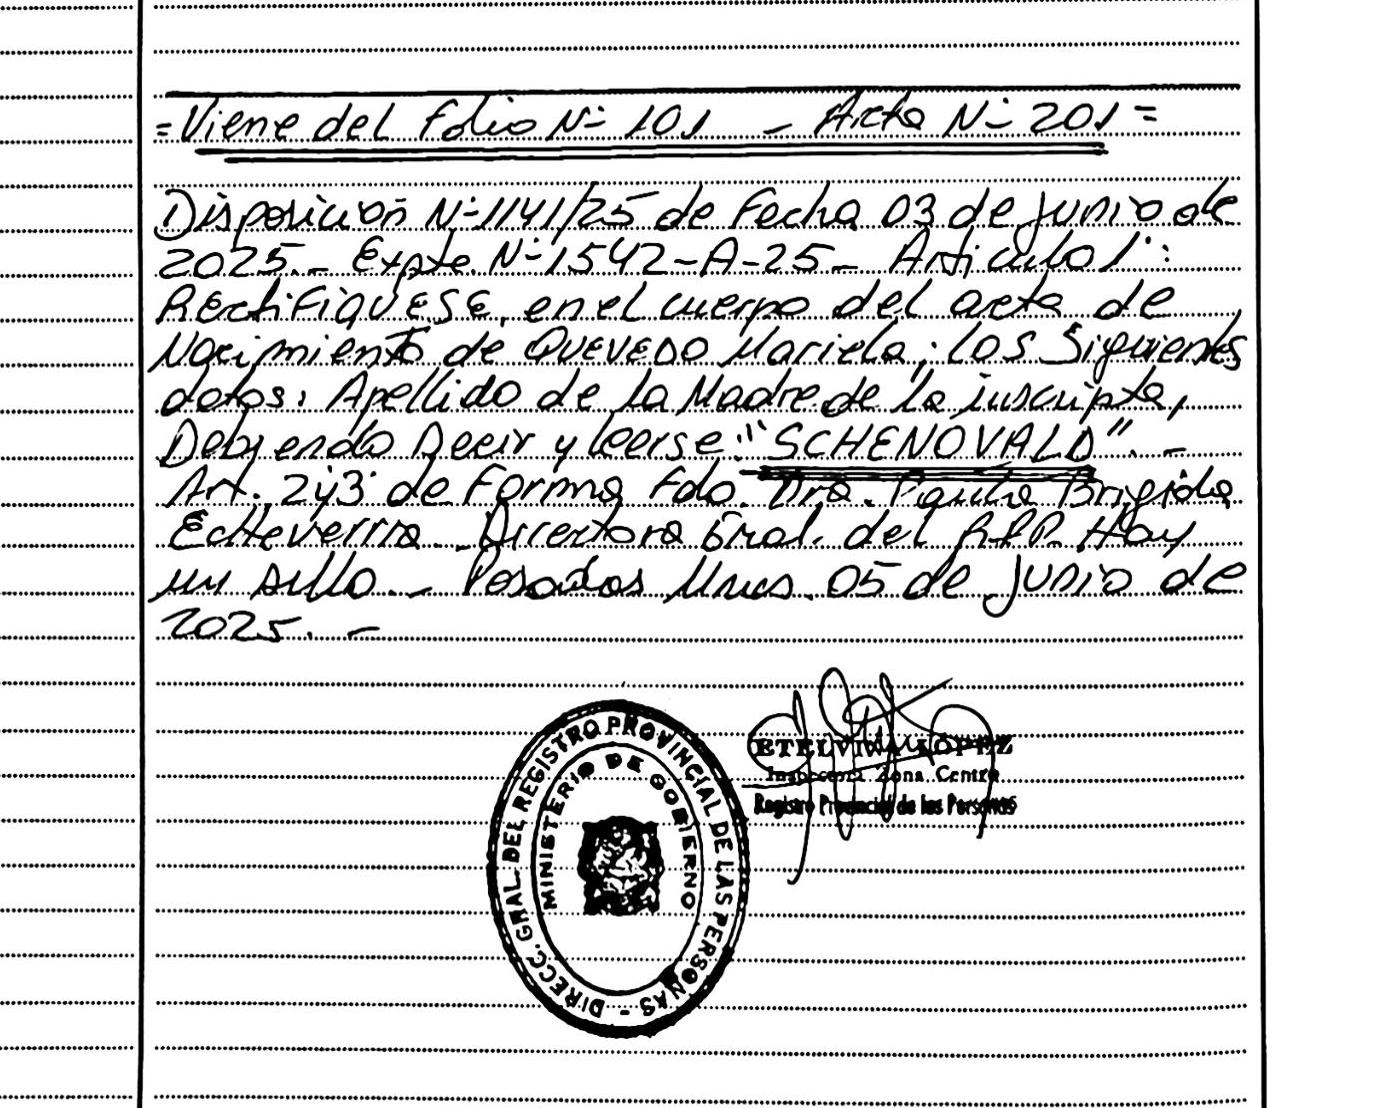 =Viene del folio Nº 101 - Acta Nº 201=
Disposición Nº 1141/25 de Fecha 03 de junio de
2025.- Expte. Nº 1542-A-25- Articulo 1º:
RECtiFIQUESE, en el cuerpo del acta de
Nacimiento de QUEVEDO Mariela; los Siguientes
datos: Apellido de la Madre de la inscripta,
Debiendo Decir y leerse: "SCHENOVALD".-
Art. 2y3 de Forma Fdo. Dra. Paula Brigida
Echeverria. Directora Gral. del R.P.P. Hay
un sello.- Posadas Mnes. 05 de junio de
2025.-
DIRECC. GRAL. DEL REGISTRO PROVINCIAL DE LAS PERSONAS -
MINISTERIO DE GOBIERNO
ETELVINA LOPEZ
Inspectora Zona Centro
Registro Provincial de las Personas